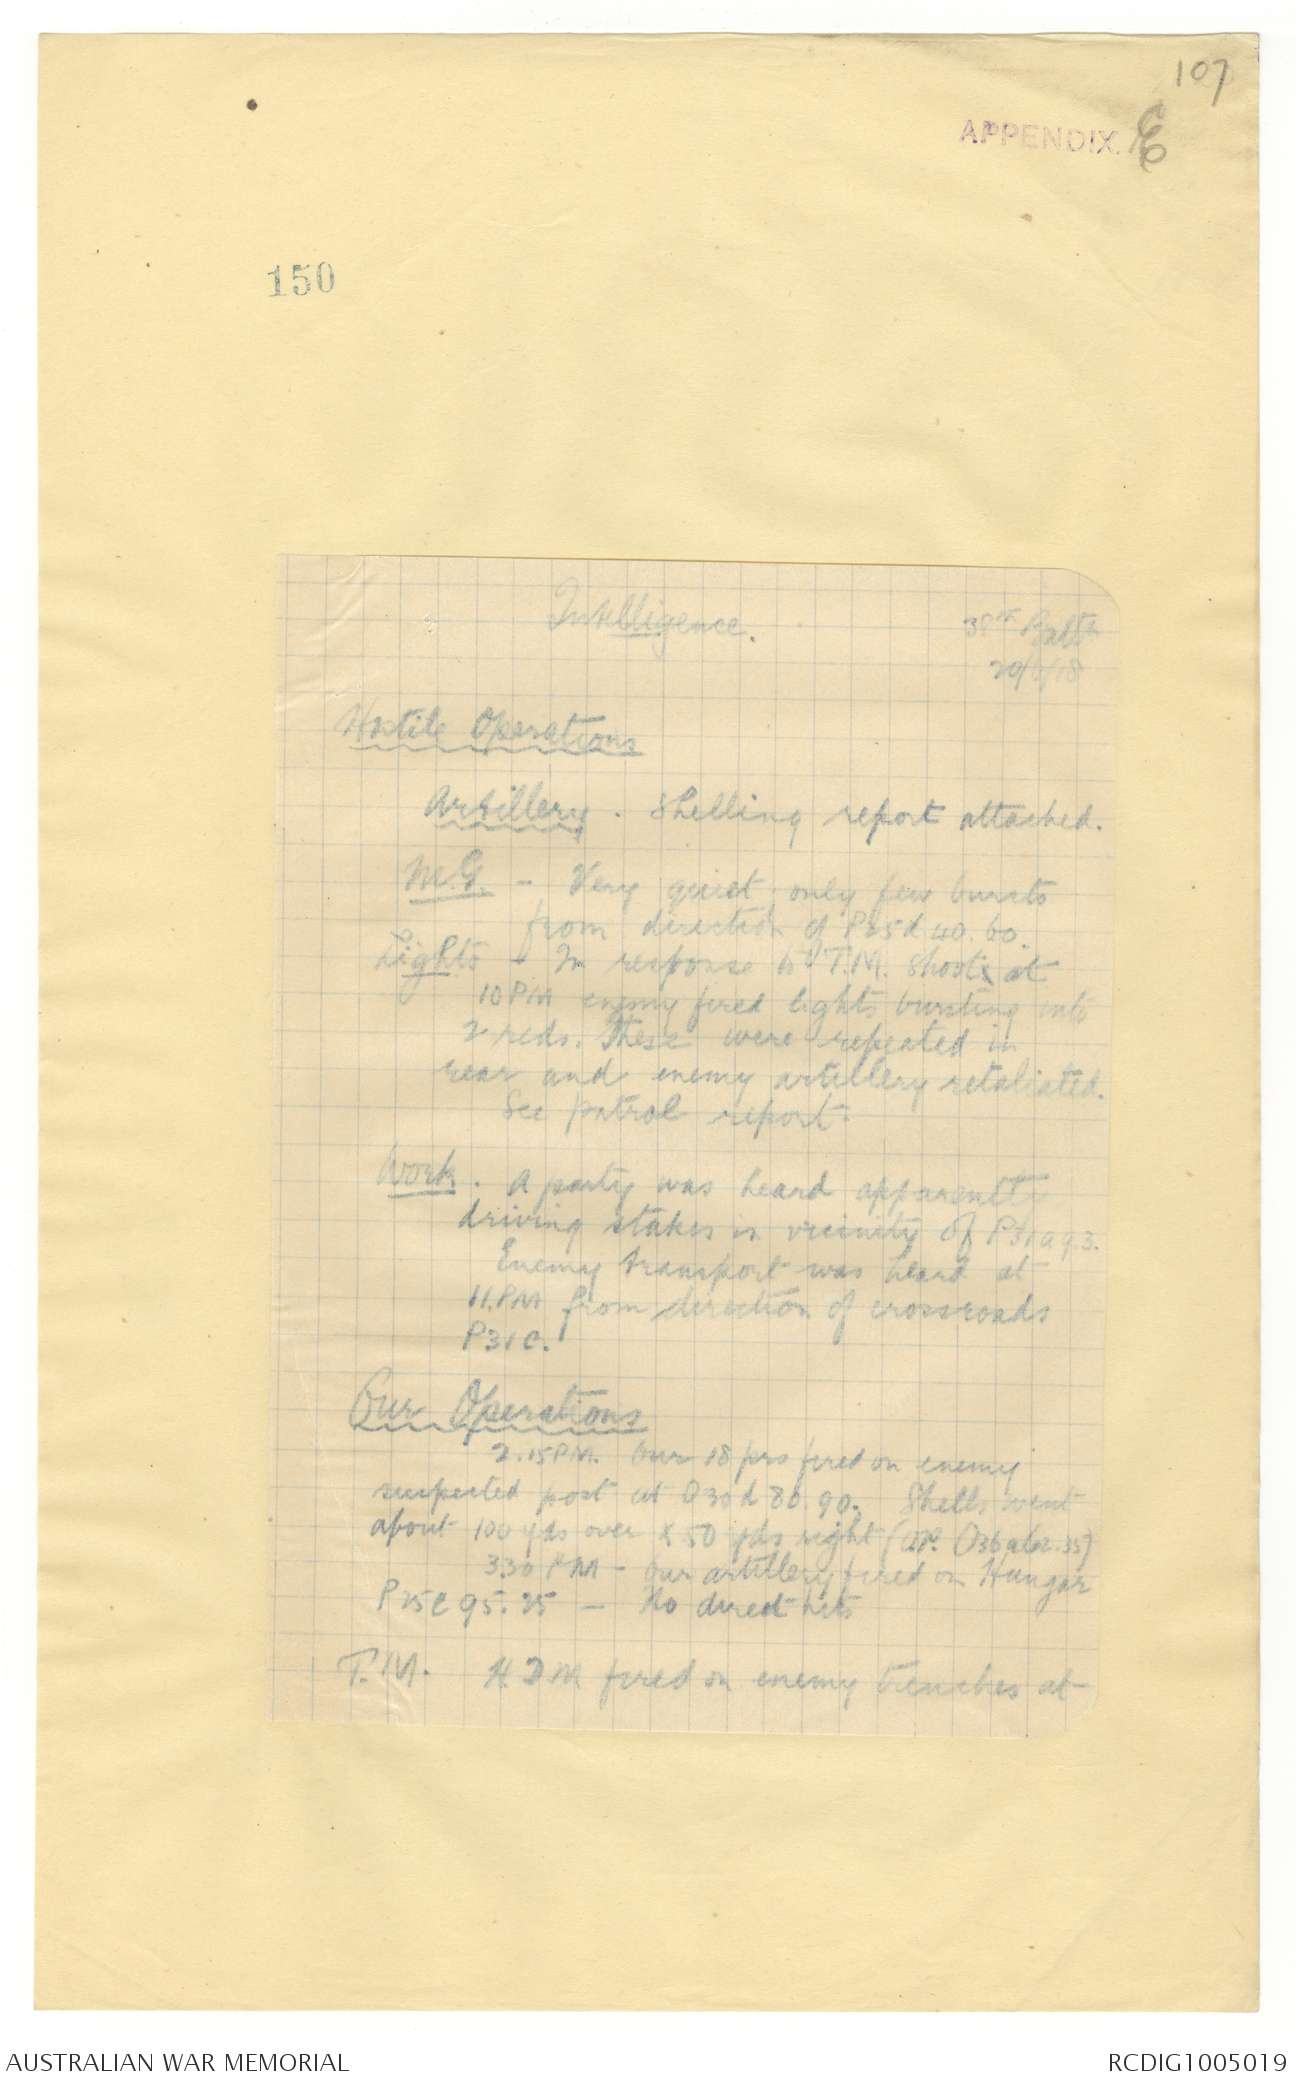 107
APPENDIX. E
150
Intelligence.
38th Battn
20/ /18
Hostile Operations
Artillery. Shelling report attached.
M.G. - Very quiet, only few bursts
from direction of P25d 40.60.
Lights - In response to T.M. Shoot at
10 PM enemy fired lights bursting into
2 reds. These were repeated in
rear and enemy artillery retaliated.
See patrol report.
Work. A party was heard apparently
driving stakes in vicinity of P31a 9.3.
Enemy transport was heard at
11.PM from direction of crossroads
P31C.
Our Operations
2.15PM. Our 18 prs fired on enemy
suspected post at O30d 80.90. Shells went
about 100 yds over & 50 yds right ( O36a 62.35)
3.30 PM - Our artillery fired on Hangar
P25C 95.25 - No direct hits
T.M. fired on enemy trenches at
AUSTRALIAN WAR MEMORIAL
RCDIG1005019